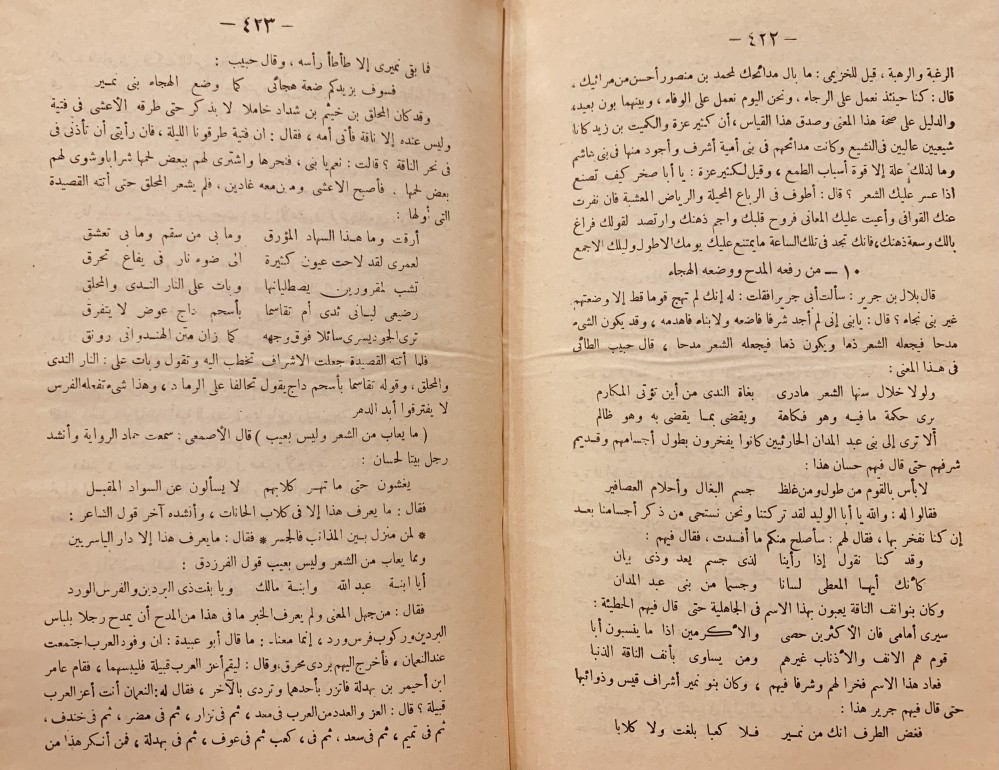 — ٤٢٢ —
الرغبة والرهبة ، قيل للخزيمى : ما بال مدائحك لمحمد بن منصور أحسن من مراثيك ،
قال : كنا حينئذ نعمل على الرجاء ، ونحن اليوم نعمل على الوفاء ، وبينهما بون بعيد،
والدليل على صحة هذا المعنى وصدق هذا القياس ، أن كثير عزة والكميت بن زيد كانا
شيعيين غاليين فى التشيع وكانت مدائحهم فى بنى أمية أشرف وأجود منها فى بنى هاشم
وما لذلك علة إلا قوة أسباب الطمع ، وقيل لكثير عزة : يا أبا صخر كيف تصنع
اذا عسر عليك الشعر ؟ قال : أطوف فى الرباع المحيلة والرياض المعشبة فان نفرت
عنك القوافى وأعيت عليك المعانى فروح قلبك واجم ذهنك وارتصد لقولك فراغ
بالك وسعة ذهنك ، فانك تجد فى تلك الساعة ما يمتنع عليك يومك الاطول وليلك الاجمع
١٠ — من رفعه المدح ووضعه الهجاء
قال بلال بن جرير : سألت أبى جريرا فقلت : له إنك لم تهج قوما قط إلا وضعتهم
غير بنى نجاء ؟ قال : يابنى إنى لم أجد شرفا فاضعه ولا بناء فاهدمه ، وقد يكون الشىء
مدحا فيجعله الشعر ذما ويكون ذما فيجعله الشعر مدحا ، قال حبيب الطائى
فى هذا المعنى :
ولولا خلال سنها الشعر مادرى بغاة الندى من أين تؤتى المكارم
يرى حكمة ما فيه وهو فكاهة ويقضى بما يقضى به وهو ظالم
ألا ترى إلى بنى عبد المدان الحارثيين كانوا يفخرون بطول أجسامهم وقديم
شرفهم حتى قال فيهم حسان هذا :
لا بأس بالقوم من طول ومن غلظ جسم البغال وأحلام العصافير
فقالوا له : والله يا أبا الوليد لقد تركتنا ونحن نستحى من ذكر أجسامنا بعد
إن كنا نفخر بها ، فقال لهم : سأصلح منكم ما أفسدت ، فقال فيهم :
وقد كنا نقول إذا رأينا لذى جسم يعد وذى بيان
كأنك أيها المعطى لسانا وجسما من بنى عبد المدان
وكان بنو انف الناقة يعبون بهذا الاسم فى الجاهلية حتى قال فيهم الحطيئة :
سيرى أمامى فان الأكثرين حصى والأكرمين اذا ما ينسبون أبا
قوم هم الانف والأذناب غيرهم ومن يساوى بأنف الناقة الذنبا
فعاد هذا الاسم فخرا لهم وشرفا فيهم ، وكان بنو نمير أشراف قيس وذوائبها
حتى قال فيهم جرير هذا :
فغض الطرف انك من نمير فلا كعبا بلغت ولا كلابا
— ٤٢٣ —
فما بقى نميرى إلا طأطأ رأسه ، وقال حبيب :
فسوف يزيدكم ضعة هجائى كما وضع الهجاء بنى نمير
وقد كان المحلق بن خيثم بن شداد خاملا لا يذكر حتى طرقه الأعشى فى فتية
وليس عنده إلا ناقة فأتى أمه ، فقال : ان فتية طرقونا الليلة ، فان رأيتى أن تأذنى فى
فى نحر الناقة ؟ قالت : نعم يا بنى ، فنحرها واشترى لهم ببعض لحمها شرابا وشوى لهم
بعض لحمها . فأصبح الاعشى ومن معه غادين ، فلم يشعر المحلق حتى أتته القصيدة
التى أولها :
أرقت وما هذا السهاد المؤرق وما بى من سقم وما بى تعشق
لعمرى لقد لاحت عيون كثيرة الى ضوء نار فى يفاع تحرق
تشب لمقرورين يصطليانها وبات على النار الندى والمحلق
رضيعى لبانى ثدى أم تقاسما بأسحم داج عوض لا يتفرق
ترى الجود يسرى سائلا فوق وجهه كما زان متن الهندوانى رونق
فلما أتته القصيدة جعلت الاشراف تخطب اليه وتقول وبات على : النار الندى
والمحلق ، وقوله تقاسما بأسحم داج يقول تحالفا على الرماد ، وهذا شىء تفعله الفرس
لا يفترقوا أبد الدهر
( ما يعاب من الشعر وليس بعيب ) قال الأصمعى : سمعت حماد الرواية وأنشد
رجل بيتا لحسان :
يغشون حتى ما تهر كلابهم لا يسألون عن السواد المقبل
فقال : ما يعرف هذا إلا فى كلاب الحانات ، وأنشده آخر قول الشاعر :
* لمن منزل بين المذانب فالجسر * فقال : ما يعرف هذا إلا دار الياسريين
ومما يعاب من الشعر وليس بعيب قول الفرزدق :
أيا ابنة عبد الله وابنة مالك ويا بنت ذى البردين والفرس الورد
فقال : من جهل المعنى ولم يعرف الخبر ما فى هذا من المدح أن يمدح رجلا بلباس
البردين وركوب فرس ورد ، إنما معناه : ما قال أبو عبيدة : ان وفود العرب اجتمعت
عند النعمان ، فأخرج اليهم بردى محرق ، وقال : ليقم أعز العرب قبيلة فليبسهما ، فقام عامر
ابن أحيمر بن بهدلة فاتزر بأحدهما وتردى بالآخر ، فقال له : النعمان أنت أعز العرب
قبيلة ؟ قال : العز والعدد من العرب فى معد ، ثم فى نزار ، ثم فى مضر ، ثم فى خندف ،
ثم فى تميم ، ثم فى سعد ، ثم فى ، كعب ثم فى عوف ، ثم فى بهدلة ، فمن أنكر هذا من